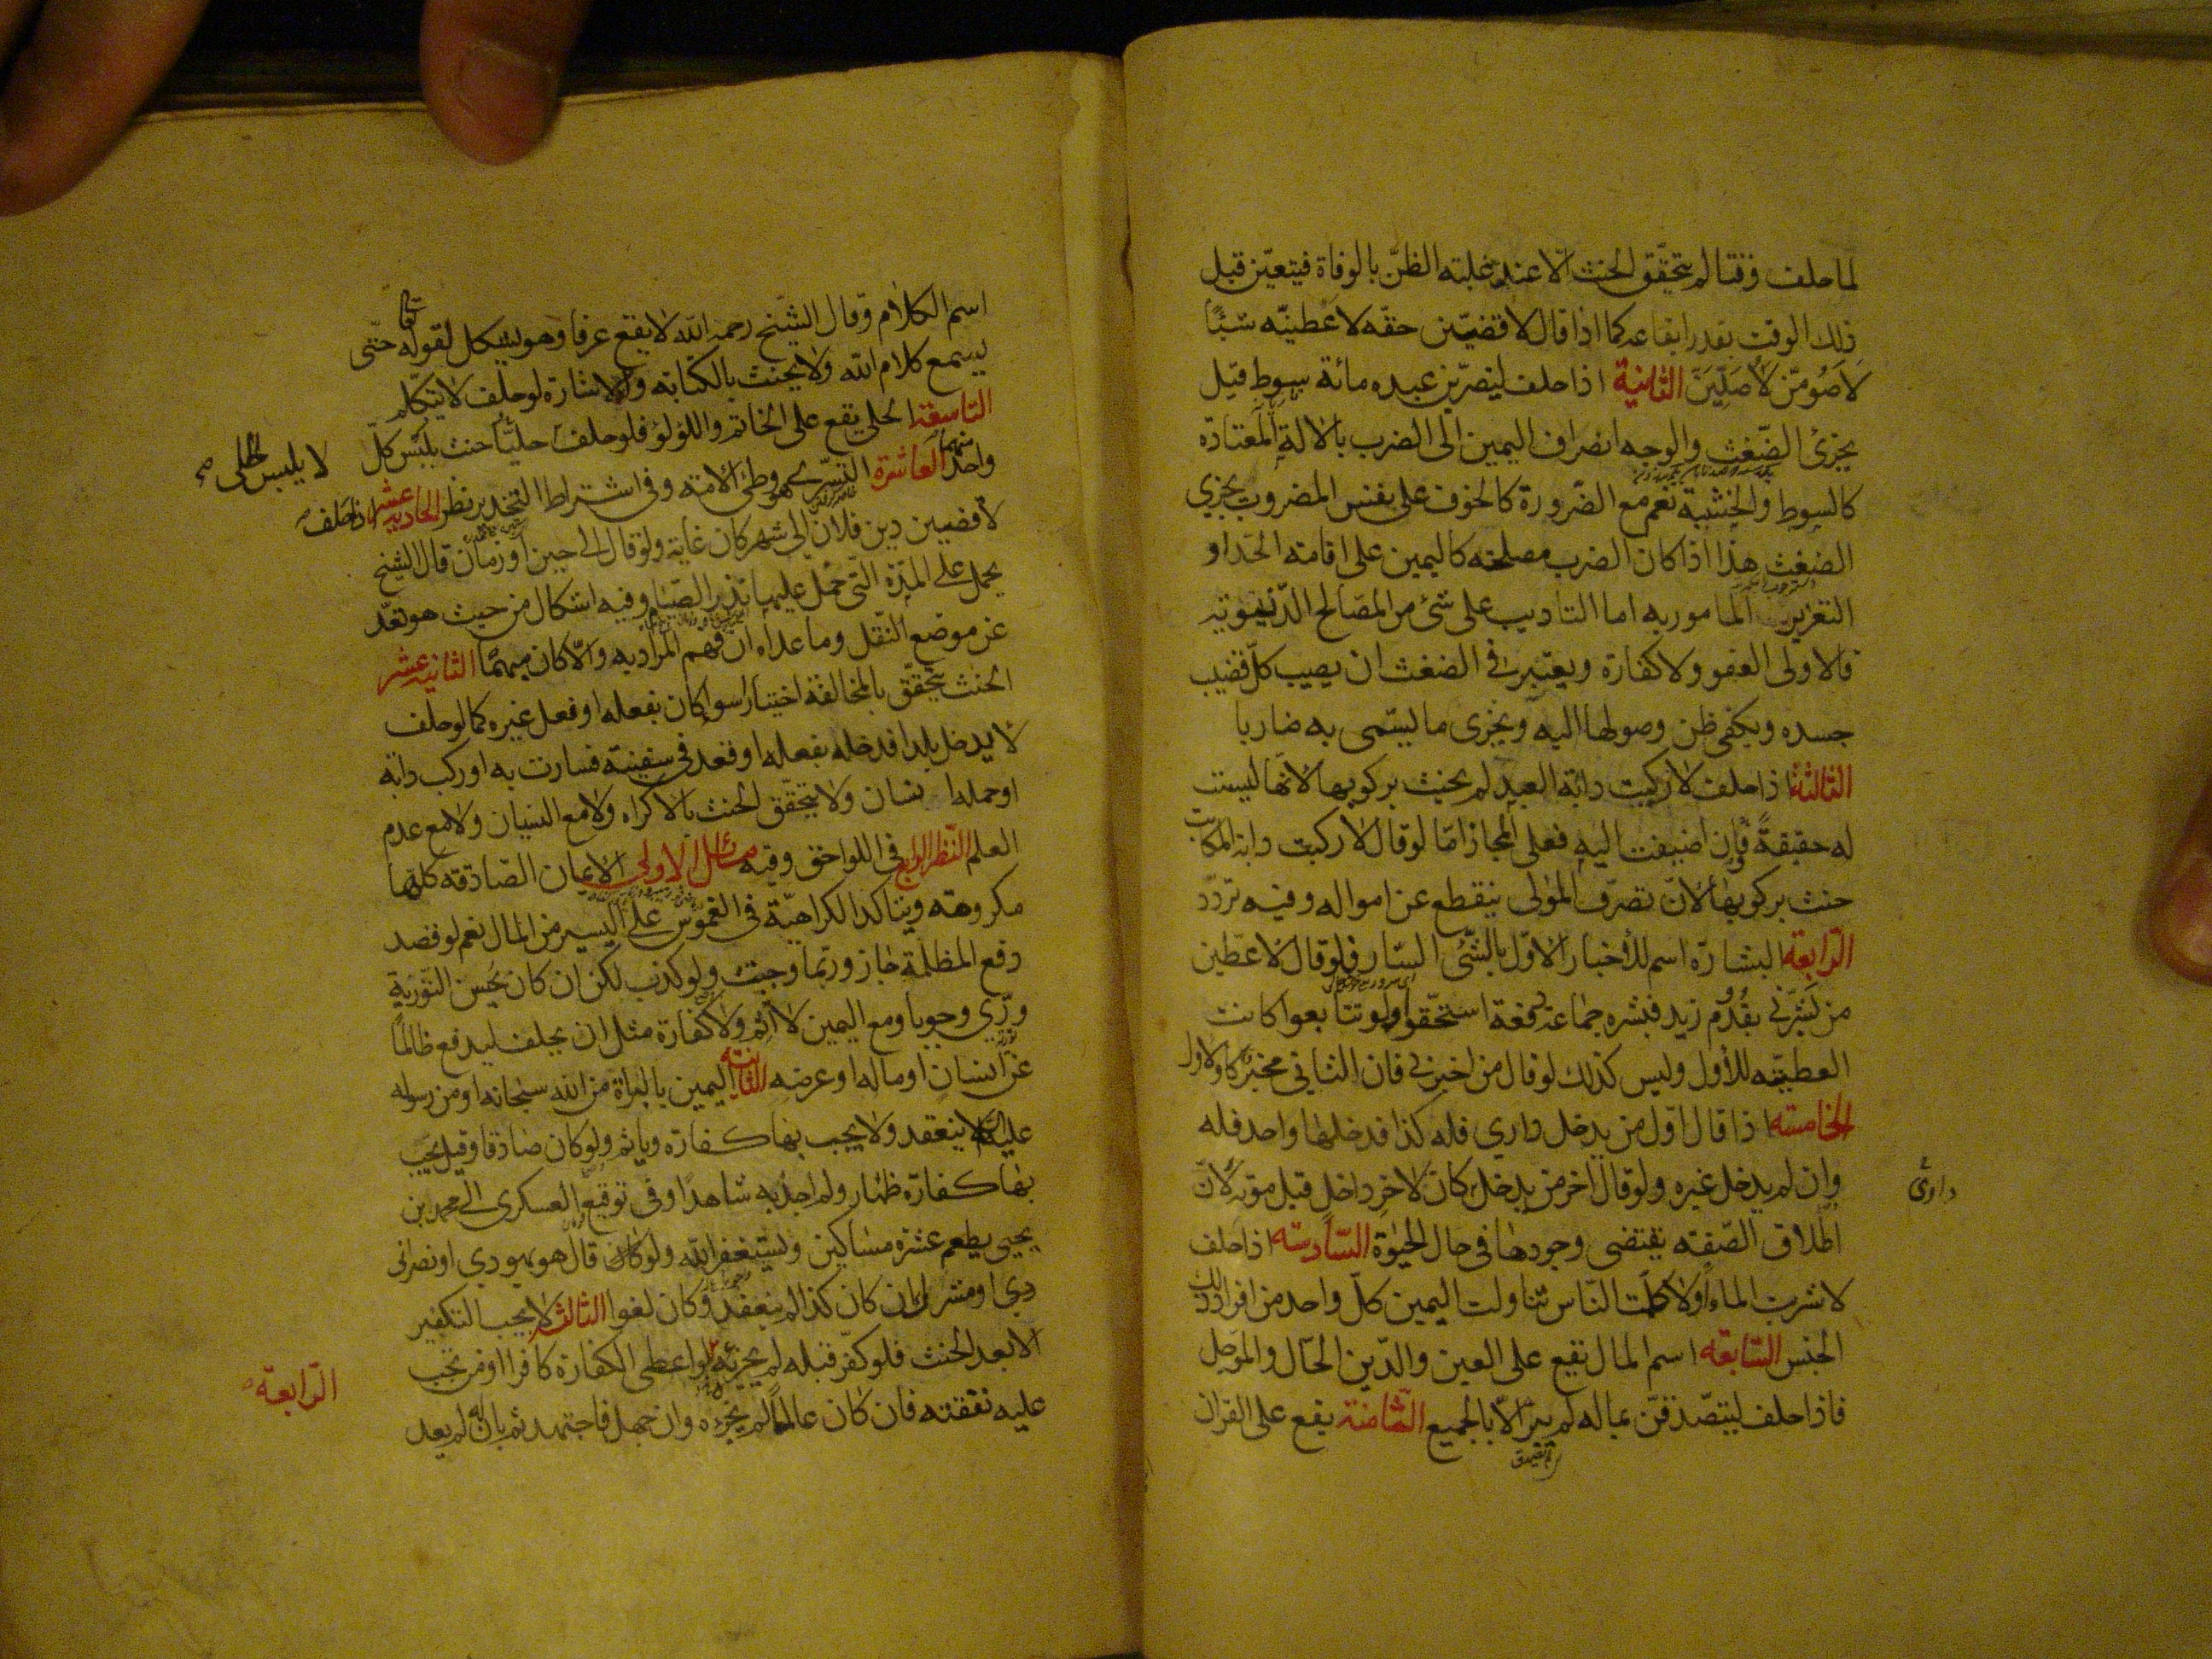 لما حلف وقتا لم يتحقق الحنث الا عند غلبة الظن بالوفاة فيتعين قبل
ذلك الوقت بقدر ايقاعه كما اذا قال لاقضين حقه لاعطينه شيئا
لاصومن لاصلين الثانية اذا حلف ليضربن عبده مائة سوط قيل
يجزئ الضغث والوجه انصراف اليمين الى الضرب بالالة المعتادة
كالسوط والخشبة نعم مع الضرورة كالخوف على نفس المضروب يجزي
الضغث هذا اذا كان الضرب مصلحة كاليمين على اقامة الحد او
التعزير المامور به اما التاديب على شئ من المصالح الدنيوية
فالاولى العفو ولا كفارة ويعتبر في الضغث ان يصيب كل قضيب
جسده ويكفي ظن وصولها اليه ويجزى ما يسمى به ضاربا
الثالثة اذا حلف لا ركبت دابة العبد لم يحنث بركوبها لانها ليست
له حقيقة وان اضيفت اليه فعلى المجاز اما لو قال لا ركبت دابة المكاتب
حنث بركوبها لان تصرف المولى ينقطع عن امواله وفيه تردد
الرابعة البشارة اسم للأخبار الاول بالشئ السار فلو قال لاعطين
من بشرني بقدوم زيد فبشره جماعة دفعة استحقوا ولو تتابعوا كانت
العطية للأول وليس كذلك لو قال من اخبرني فان الثاني مخبر كالاول
الخامسة اذا قال اول من يدخل داري فله كذا فدخلها واحد فله
وان لم يدخل غيره ولو قال اخر من يدخل كان لاخر داخل قبل موته لان
داري
اطلاق الصفة يقتضي وجودها في حال الحيوة السادسة اذا حلف
لا شربت الماء او لا كلمت الناس تناولت اليمين كل واحد من افراد ذلك
الجنس السابعة اسم المال يقع على العين والدين الحال والمؤجل
فاذا حلف ليتصدقن بماله لم يبر الا بالجميع الثامنة يقع على القران
اسم الكلام وقال الشيخ رحمه الله لا يقع عرفا وهو يشكل لقوله تعالى حتى
يسمع كلام الله ولا يحنث بالكتابة والاشارة لو حلف لا يتكلم
التاسعة الحلي يقع على الخاتم واللؤلؤ فلو حلف حليا حنث بلبس كل
لا يلبس الحلى صح
واحد منهما العاشرة التسري هو وطئ الامة وفي اشتراط التخدير نظر الحادية عشر اذا حلف
لاقضين دين فلان الى شهر كان غاية ولو قال الى حين او زمان قال الشيخ
يحمل على المدة التي حمل عليها نذر الصيام وفيه اشكال من حيث هو تعد
عن موضع النقل وما عداه ان فهم المراد به والا كان مبهما الثانية عشر
الحنث يتحقق بالمخالفة اختيارا سواء كان بفعله او فعل غيره كما لو حلف
لا يدخل بلدا فدخله بفعله او قعد في سفينة فسارت به او ركب دابة
او حمله انسان ولا يتحقق الحنث بالاكراه ولا مع النسيان ولا مع عدم
العلم النظر الرابع في اللواحق وفيه مسائل الاولى الايمان الصادقة كلها
مكروهة ويتاكد الكراهية في الغموس على اليسير من المال نعم لو قصد
دفع المظلمة جاز وربما وجبت ولو كذب لكن ان كان يحسن التورية
ورّي وجوبا ومع اليمين لا اثم ولا كفارة مثل ان يحلف ليدفع ظالما
عن انسان او ماله او عرضه الثانية اليمين بالبراة من الله سبحانه او من رسوله
عليه لا ينعقد ولا يجب بها كفارة وياثم ولو كان صادقا وقيل يجب
بها كفارة ظهار ولم اجد به شاهدا وفي توقيع العسكري الى محمد بن
يحيى يطعم عشرة مساكين ويستغفر الله ولو قال هو يهودي او نصراني
او مشرك ان كان كذا لم ينعقد وكان لغوا الثالثة لا يجب التكفير
الا بعد الحنث فلو كفر قبله لم يجزئه لو اعطى الكفارة كافرا او من تجب
الرابعة
عليه نفقته فان كان عالما لم يجزه وان جهل فاجتهد ثم بان له لم يعد